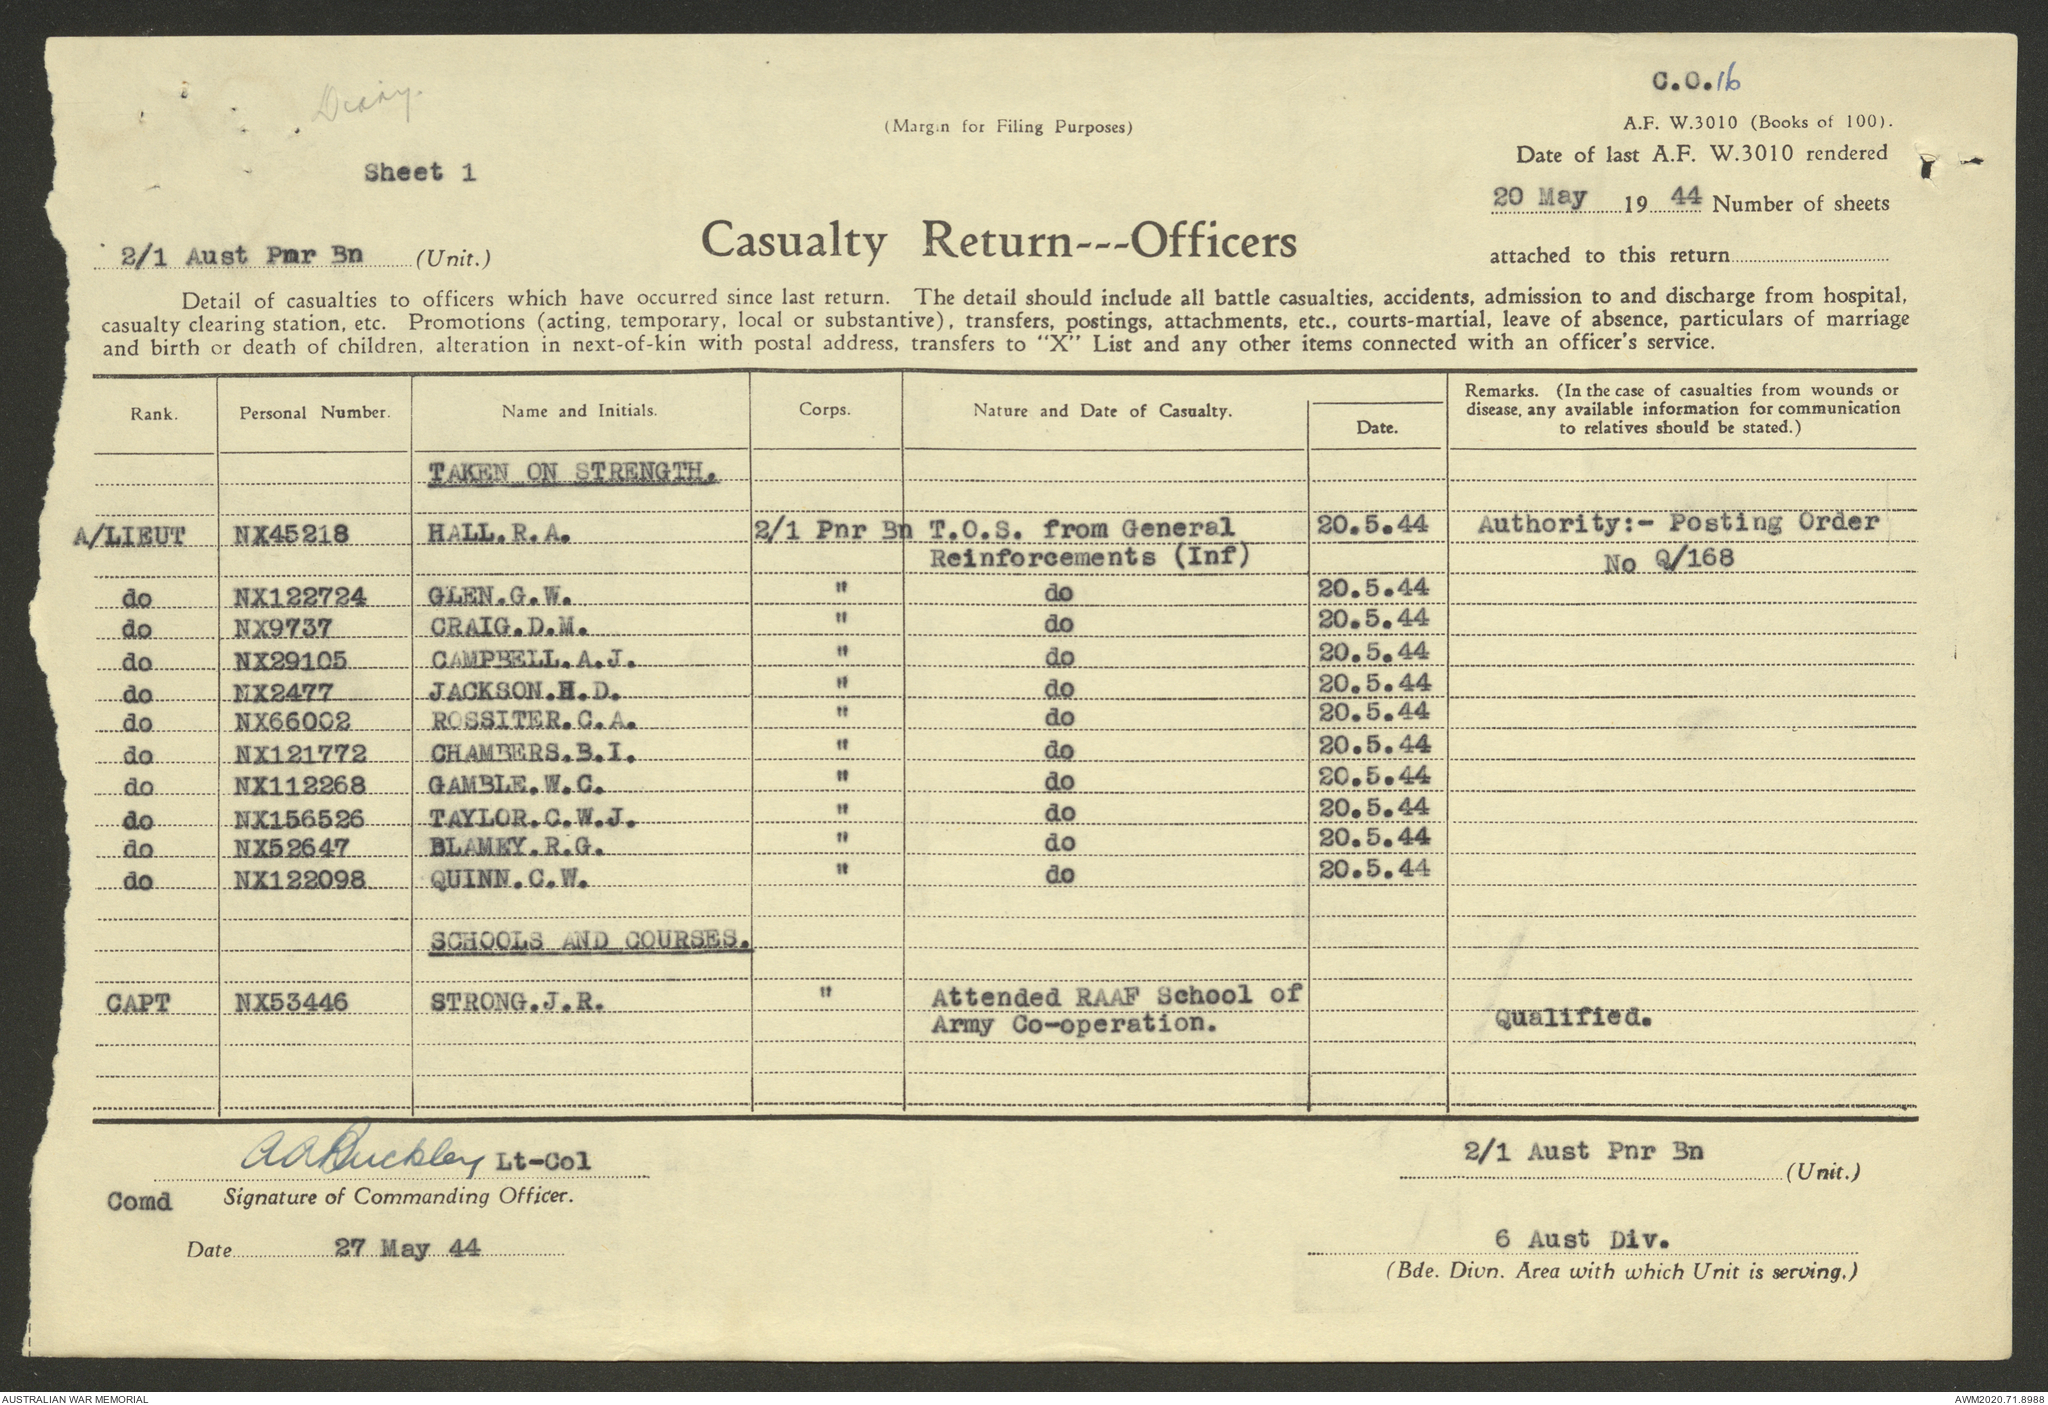 Diary.
C.O.16
(Margin for Filing Purposes)
A.F. W.3010 (Books of 100).
Date of last A.F. W.3010 rendered
Sheet 1
20 May 19 44 Number of sheets
Casualty Return---Officers
2/1 Aust Pnr Bn (Unit.)
attached to this return
Detail of casualties to officers which have occurred since last return. The detail should include all battle casualties, accidents, admission to and discharge from hospital,
casualty clearing station, etc. Promotions (acting, temporary, local or substantive), transfers, postings, attachments, etc., courts-martial, leave of absence, particulars of marriage
and birth or death of children, alteration in next-of-kin with postal address, transfers to "X" List and any other items connected with an officer's service.
Rank. Personal Number. Name and Initials. Corps. Nature and Date of Casualty. Date. Remarks. (In the case of casualties from wounds or
disease, any available information for communication
to relatives should be stated.)
TAKEN ON STRENGTH.
A/LIEUT NX45218 HALL.R.A. 2/1 Pnr Bn T.O.S. from General 20.5.44 Authority:- Posting Order
Reinforcements (Inf) No Q/168
do NX122724 GLEN.G.W. " do 20.5.44
do NX9737 CRAIG.D.M. " do 20.5.44
do NX29105 CAMPBELL.A.J. " do 20.5.44
do NX2477 JACKSON.H.D. " do 20.5.44
do NX66002 ROSSITER.C.A. " do 20.5.44
do NX121772 CHAMBERS.B.I. " do 20.5.44
do NX112268 GAMBLE.W.C. " do 20.5.44
do NX156526 TAYLOR.C.W.J. " do 20.5.44
do NX52647 BLAMEY.R.G. " do 20.5.44
do NX122098 QUINN.C.W. " do 20.5.44
SCHOOLS AND COURSES.
CAPT NX53446 STRONG.J.R. " Attended RAAF School of
Army Co-operation. Qualified.
AABuckley Lt-Col
2/1 Aust Pnr Bn (Unit.)
Comd Signature of Commanding Officer.
Date 27 May 44
6 Aust Div.
(Bde. Divn. Area with which Unit is serving.)
AUSTRALIAN WAR MEMORIAL
AWM2020.71.8988